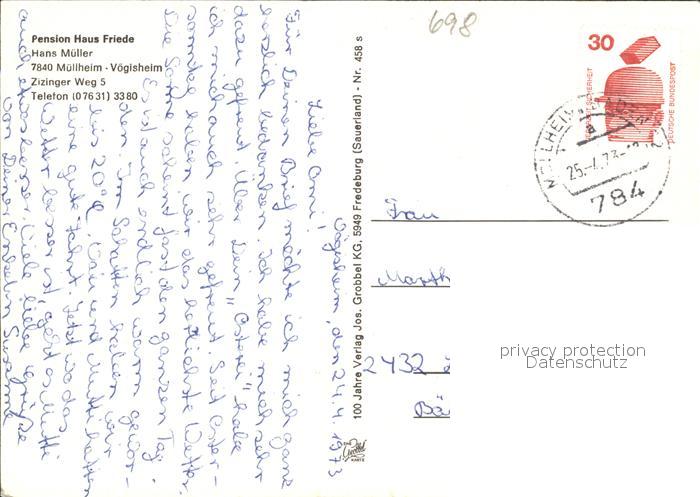 Pension Haus Friede
Hans Müller
7840 Müllheim - Vögisheim
Zizinger Weg 5
Telefon (07631) 3380
698
30
JEDERZEIT SICHERHEIT
DEUTSCHE BUNDESPOST
MÜLLHEIM, BADEN
a
25.-4.73-12
784
Vögisheim, den 24.4.1973
Liebe Omi!
Für Deinen Brief möchte ich mich ganz
herzlich bedanken. Ich habe mich sehr
dazu gefreut. Über Dein "Osterei" habe
ich mich auch sehr gefreut. Seit Oster-
sonntag haben wir das herrlichste Wetter.
Die Sonne scheint fast den ganzen Tag.
Es ist auch endlich warm gewor-
den. Im Schatten haben wir
bis 20°C. Vati und Mutti hatten
eine gute Fahrt. Jetzt wo das
Wetter besser ist, geht es Mutti
auch etwas besser. Viele liebe Grüße
von Deiner Enkelin Susanne
100 Jahre Verlag Jos. Grobbel KG. 5949 Fredeburg (Sauerland) - Nr. 458 s
Grobbel
KARTE
Frau
Marth
2432
Bä
privacy protection
Datenschutz